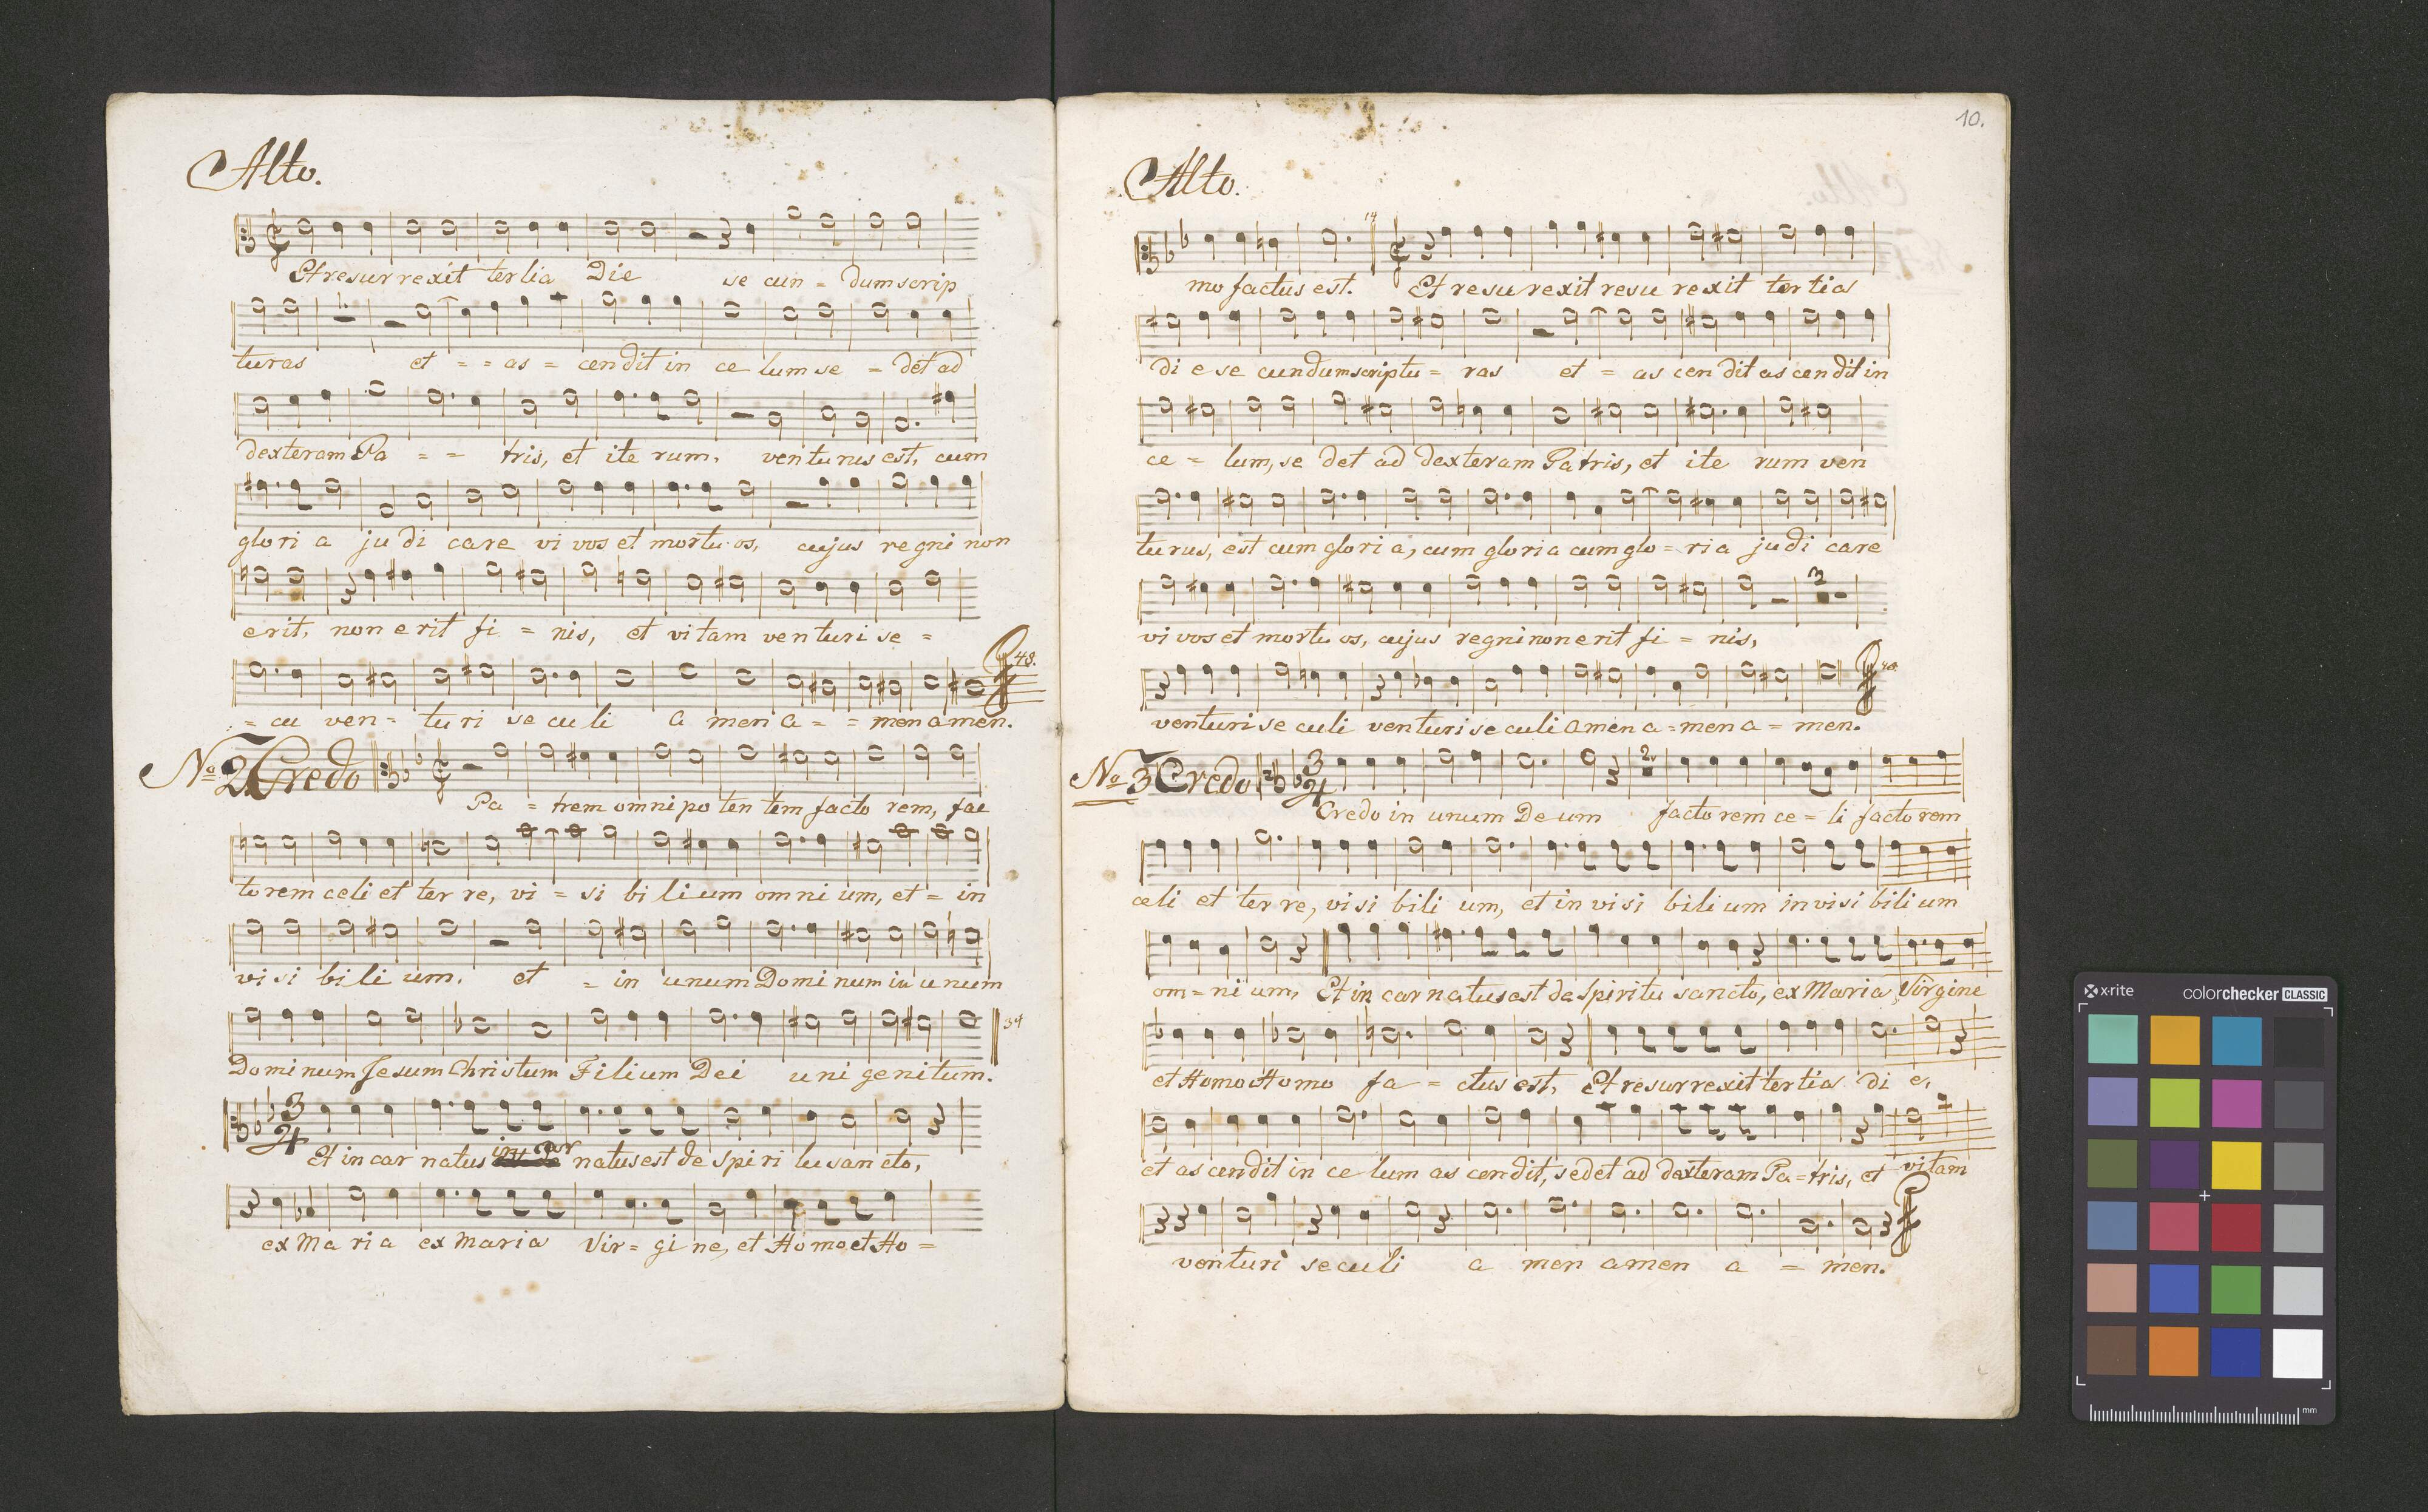 Alto.
Et resur rexit tertia Die se cun = dum scrip
turas et = = as = cendit in ce lum se = det ad
dexteram Pa = = tris, et ite rum, venturus est, cum
glori a ju di care vi vos et mortu os, cujus regni non
erit, non erit fi = nis, et vitam venturi se =
48.
= cu ven = tu ri se cu li a men a = = men amen.
No 2. Credo
Pa = trem omnipo ten tem facto rem, fac
torem celi et ter re, vi = si bi lium omni um, et = in
visi bili um. et = in unum Dominum in unum
34
Dominum Jesum Christum Filium Dei uni genitum.
3
4
Et in car natus in car natus est de Spiri tu san cto,
ex Ma ria ex Maria Vir = gi ne, et Homo et Ho =
10.
Alto.
14
mo factus est. Et resu rexit resu rexit tertia
di e se cundum scriptu = ras et = as cen dit as cendit in
ce = lum, se det ad dexteram Patris, et ite rum ven
turus, est cum glori a, cum gloria cum glo = ria judi care
3
vi vos et mortu os, cujus regni non erit fi = nis,
venturi se culi venturi se culi amen a = men a = men.
No 3 Credo
3
4
2
Credo in unum Deum factorem ce = li factorem
celi et ter re, visi bili um, et in visi bili um invisi bilium
om = ni um, Et in car natus est de Spiritu sancto, ex Maria Virgine
et Homo Homo fa = ctus est, Et resurrexit tertia di e,
et as cendit in ce lum as cendit, sedet ad dexteram Pa = tris, et vitam
venturi seculi a men amen a = men.
x-rite
colorchecker CLASSIC
mm